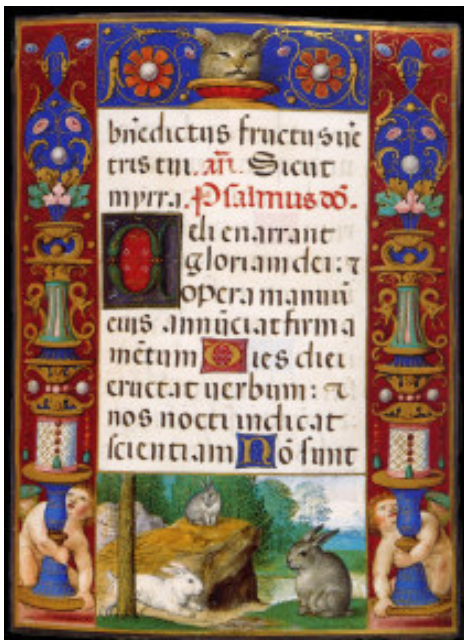 bn̄edictus fructus uē
tris tui. añ. Sicut
myrra. Psalmus dō.
Celi enarrant
gloriam dei: ⁊
opera manuū
eius annūciat firma
mētum Dies diei
eructat uerbum: ⁊
nox nocti indicat
scientiam Nō sunt